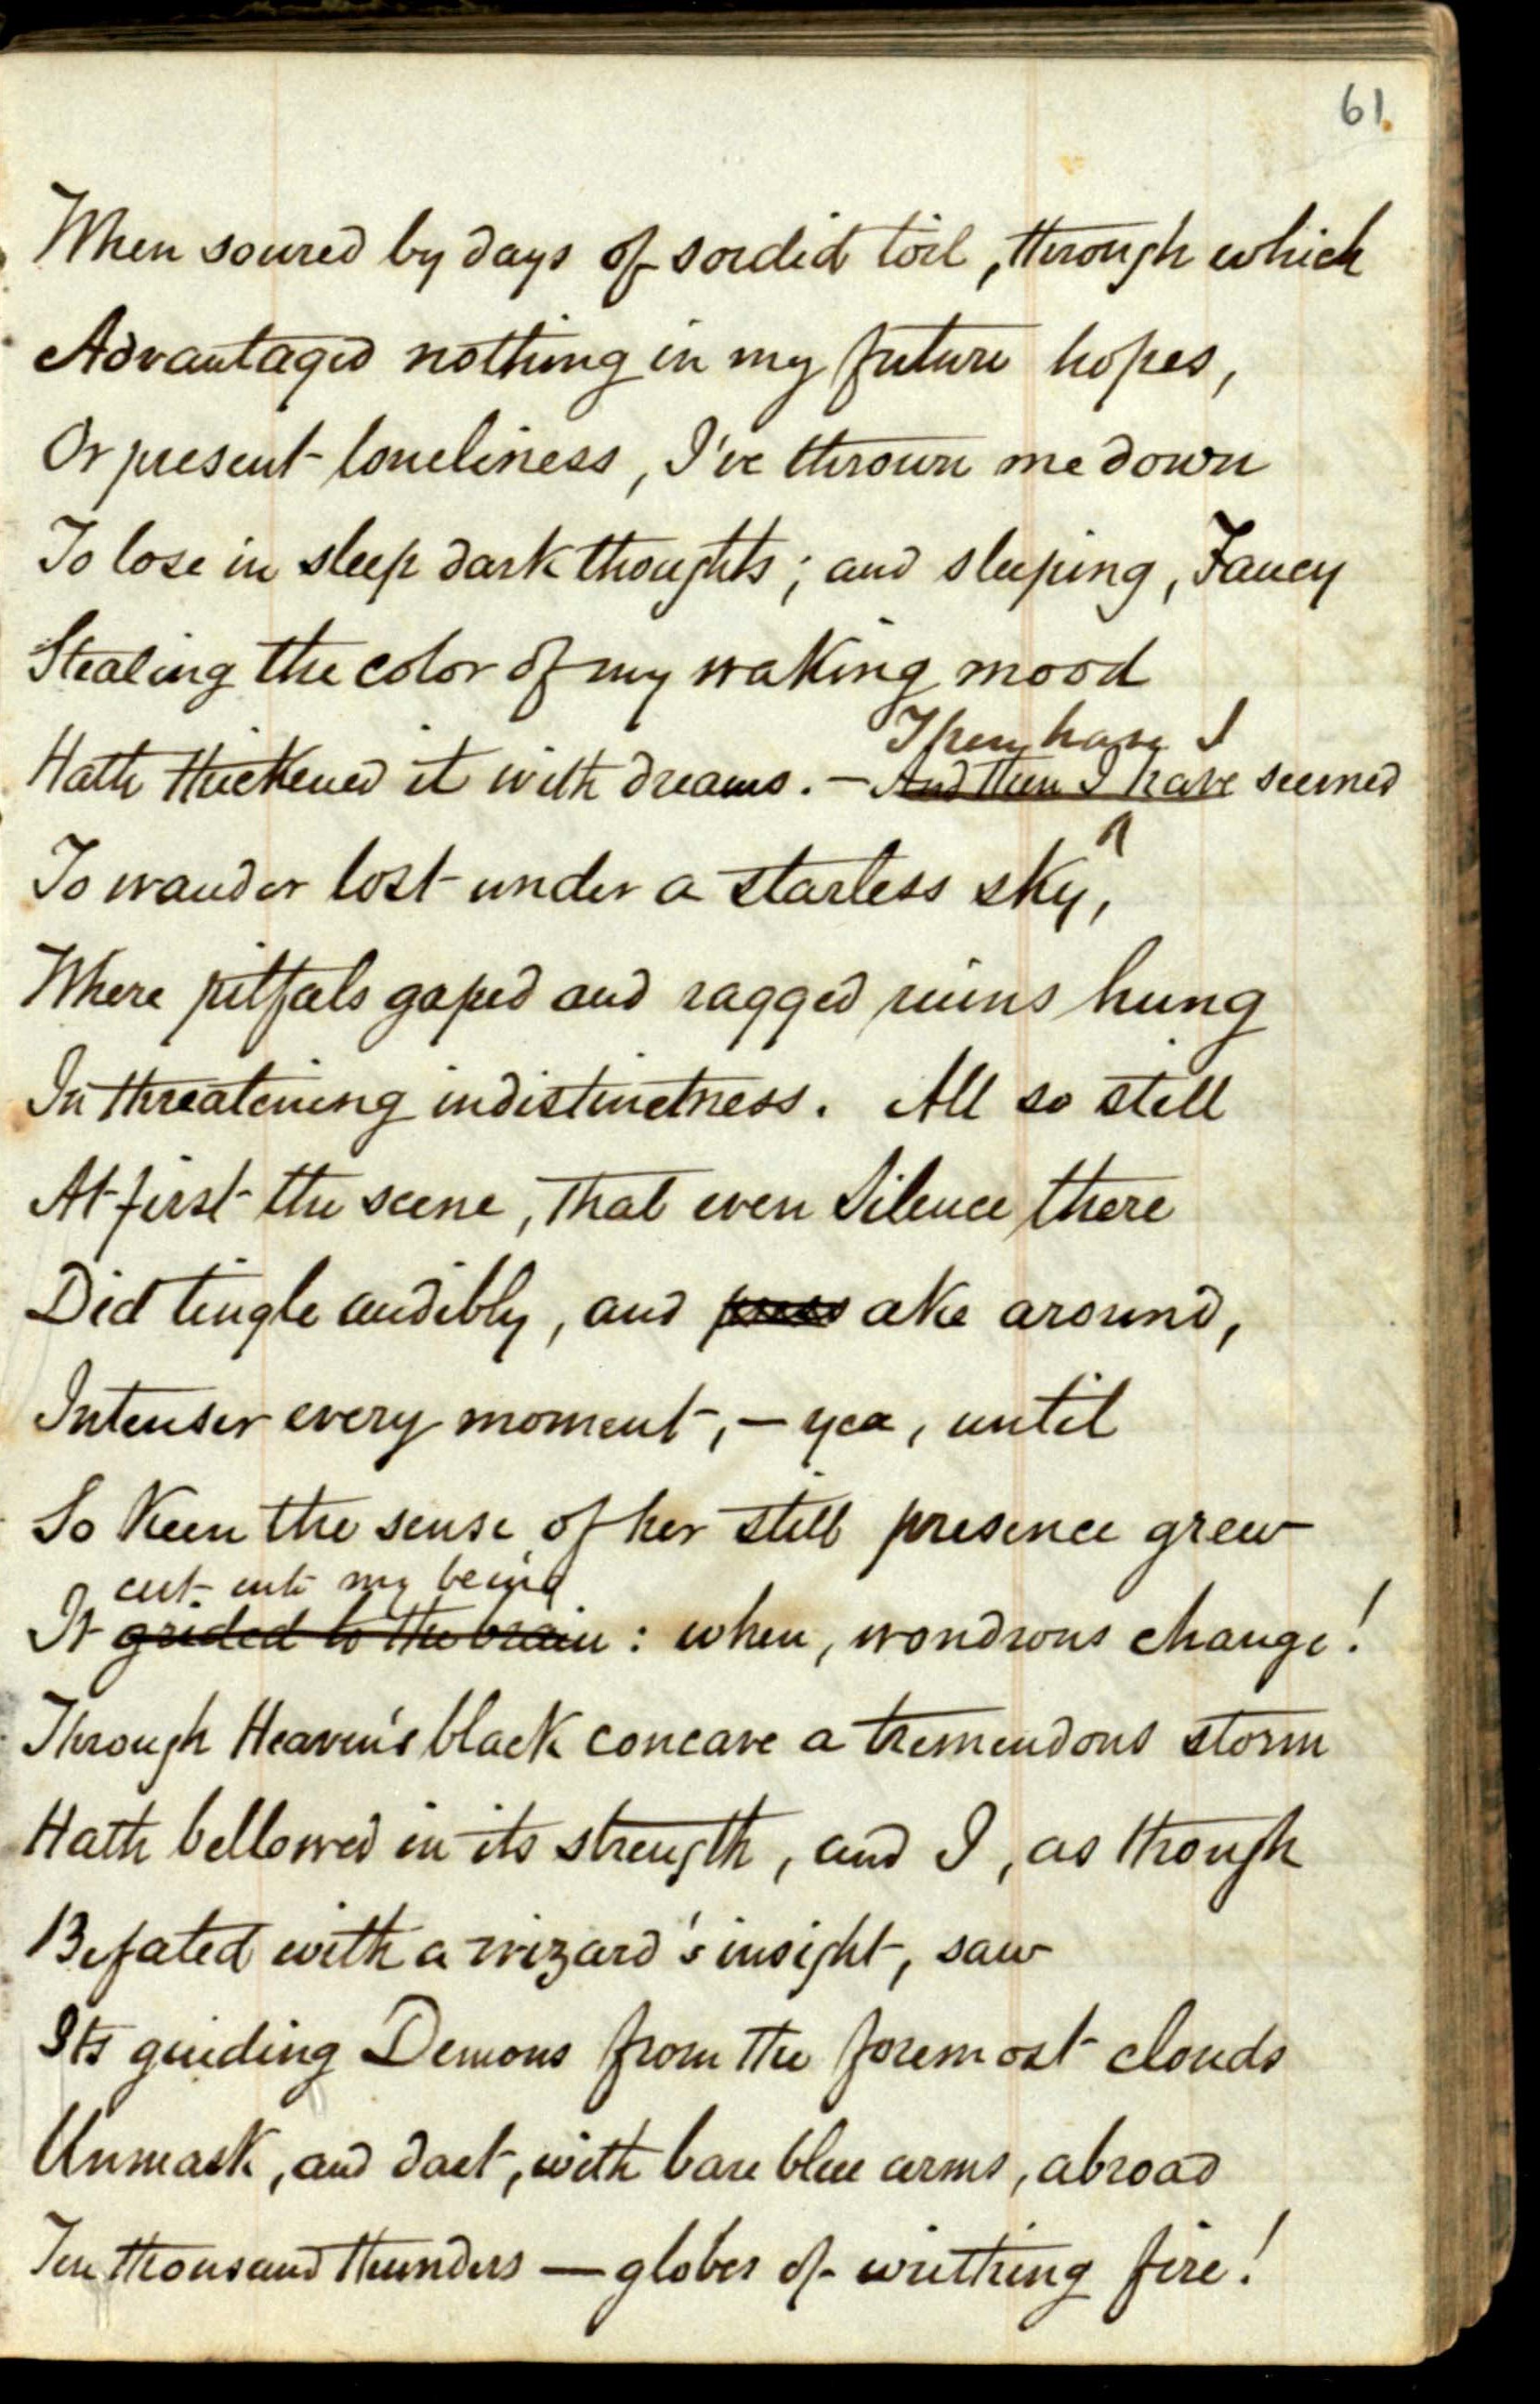 61
When soured by days of sordid toil, through which
Advantaged nothing in my future hopes,
Or present loneliness, I've thrown me down
To lose in sleep dark thoughts; and sleeping, Fancy
Stealing the color of my waking mood
Then have I
Hath thickened it with dreams. — And then I have seemed
To wander lost under a starless sky,
Where pitfals gaped and ragged ruins hung
In threatening indistinctness. All so still
At first the scene, that even Silence there
Did tingle audibly, and ake around,
Intenser every moment, — yea, until
So keen the sense of her still presence grew
cut into my being
It grided to the brain: when, wondrous change!
Through Heaven's black concave a tremendous storm
Hath bellowed in its strength, and I, as though
Befated with a wizard's insight, saw
Its guiding Demons from the foremost clouds
Unmask, and dart, with bare blue arms, abroad
Ten thousand thunders — globes of writhing fire!